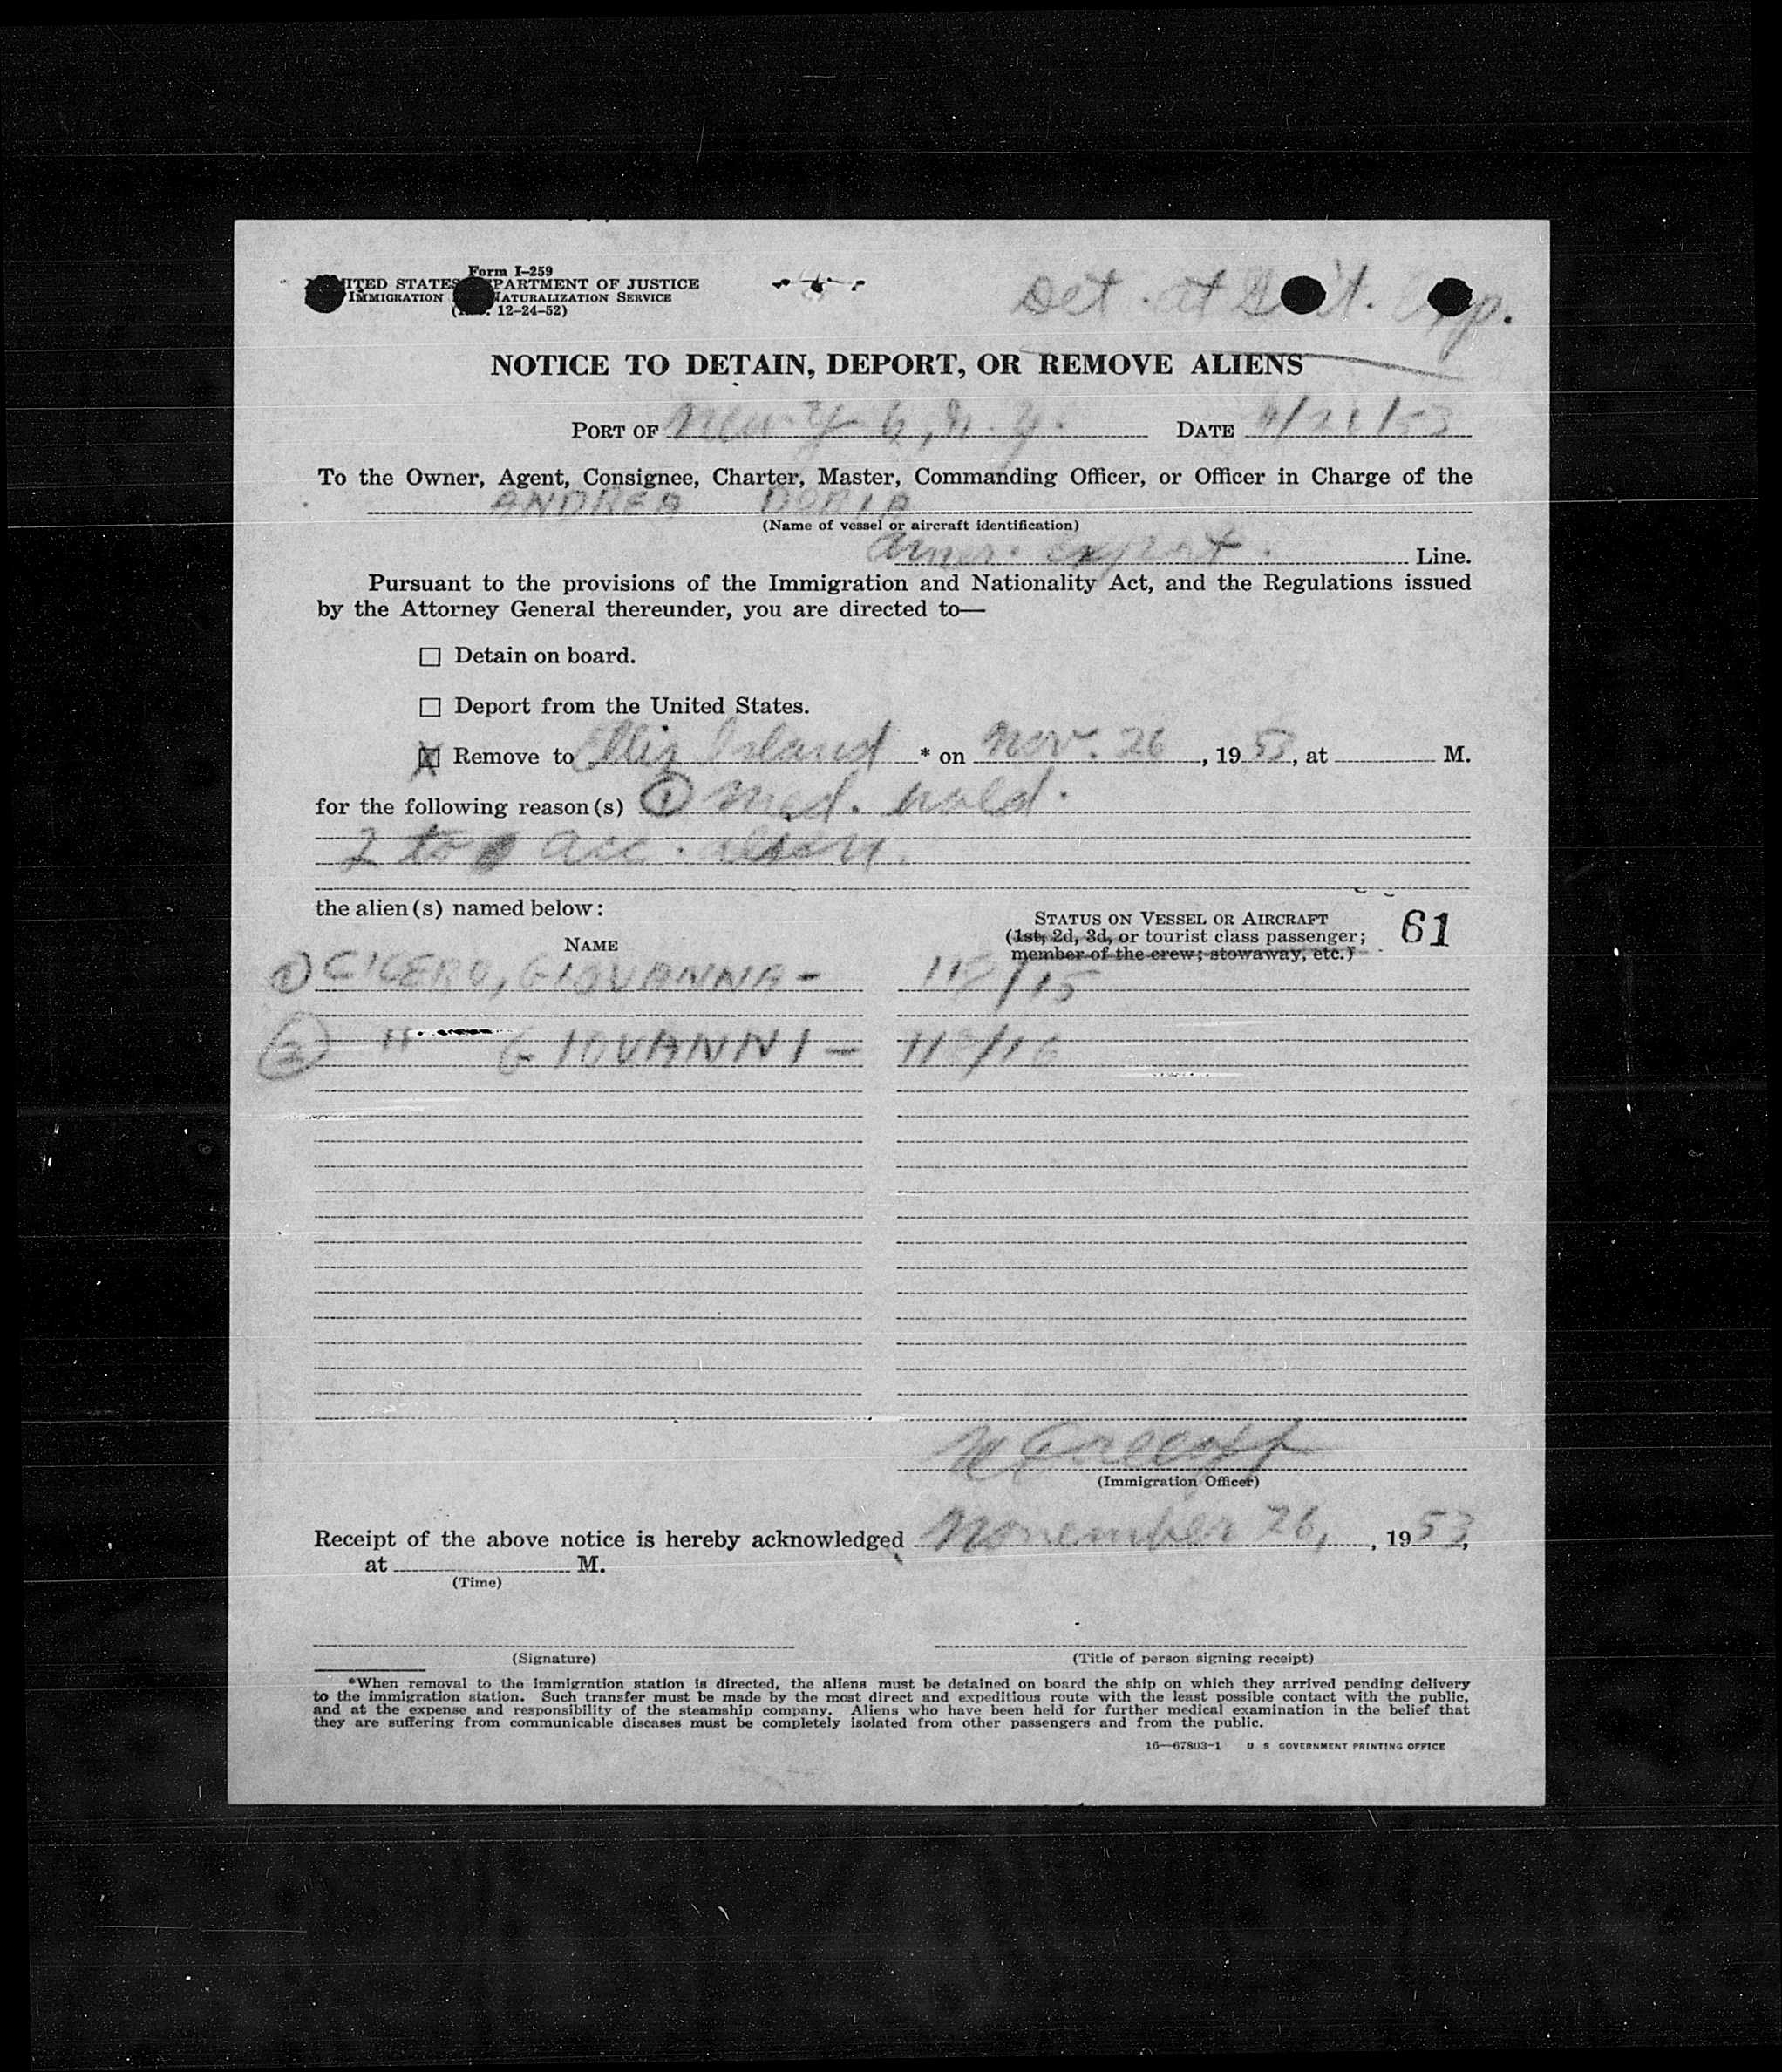 Form I-259
UNITED STATES DEPARTMENT OF JUSTICE
IMMIGRATION NATURALIZATION SERVICE
12-24-52)
Det. at
NOTICE TO DETAIN, DEPORT, OR REMOVE ALIENS
PORT OF New Y N.Y. DATE /53
To the Owner, Agent, Consignee, Charter, Master, Commanding Officer, or Officer in Charge of the
ANDREA DORIA
(Name of vessel or aircraft identification)
Amer. Export. Line.
Pursuant to the provisions of the Immigration and Nationality Act, and the Regulations issued
by the Attorney General thereunder, you are directed to—
Detain on board.
Deport from the United States.
X Remove to Ellis Island * on Nov. 26, 1953, at M.
for the following reason(s) ① Med. hold.
2 to acc.
the alien(s) named below:
STATUS ON VESSEL OR AIRCRAFT 61
NAME (1st, 2d, 3d, or tourist class passenger;
member of the crew; stowaway, etc.)
① CICERO, GIOVANNA - /15
② " GIOVANNI - /16
(Immigration Officer)
Receipt of the above notice is hereby acknowledged November 26, , 1953,
at M.
(Time)
(Signature) (Title of person signing receipt)
*When removal to the immigration station is directed, the aliens must be detained on board the ship on which they arrived pending delivery
to the immigration station. Such transfer must be made by the most direct and expeditious route with the least possible contact with the public,
and at the expense and responsibility of the steamship company. Aliens who have been held for further medical examination in the belief that
they are suffering from communicable diseases must be completely isolated from other passengers and from the public.
16—67803-1 U S GOVERNMENT PRINTING OFFICE